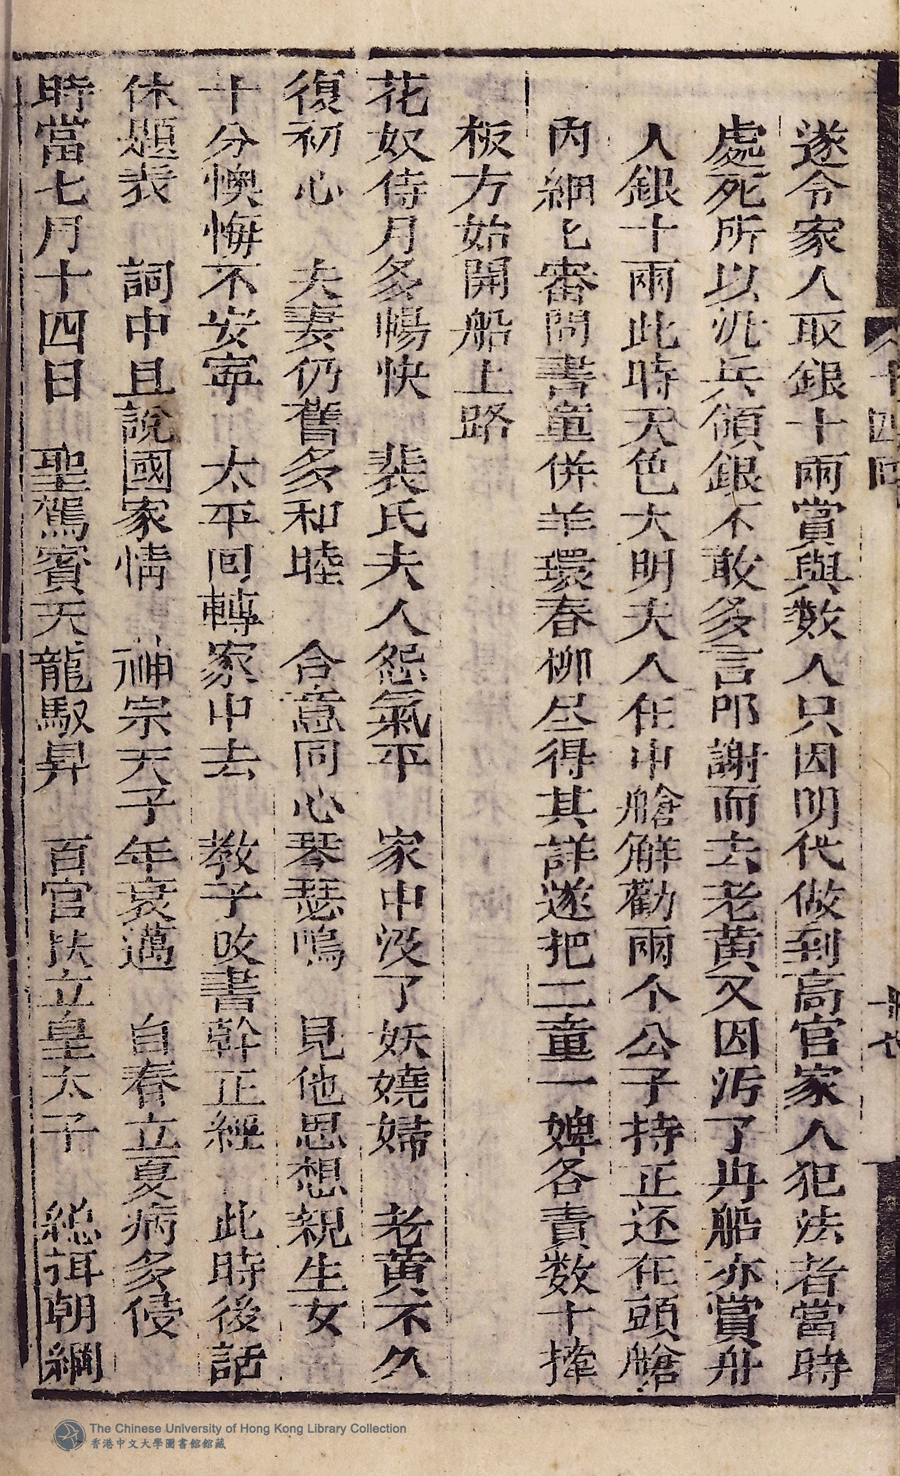 遂令家人取銀十兩賞與数人只因明代做到高官家人犯法者當時
處死所以汎兵領銀不敢多言叩謝而去老黄又因污了舟船亦賞舟
人銀十兩此時天色大明夫人在中艙解勸兩个公子持正还在頭艙
内細匕審問書童併羊環春柳尽得其詳遂把二童一婢各責数十捧
板方始開船上路
花奴侍月多暢快　裴氏夫人怨氣平　家中没了妖嬈婦　老黄不久
復初心　夫妻仍舊多和睦　合意同心琴瑟鳴　見他思想親生女
十分懊悔不安寜　太平回轉家中去　教子攻書幹正經　此時後話
休題表　詞中且說國家情　神宗天子年衰邁　自春立夏病多侵
時當七月十四日　聖駕賓天龍馭昇　百官扶立皇太子　総理朝綱
十四回
The Chinese University of Hong Kong Library Collection
香港中文大學圖書館館藏